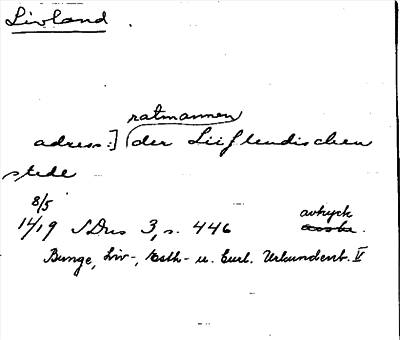 Livland .
ratmannen
adress:] (der Liiflendischen
stede
8/5
1419 SDns 3, s. 446 avtryck
Bunge, Liv-, Esth- u. Curl. Urkundenb. V